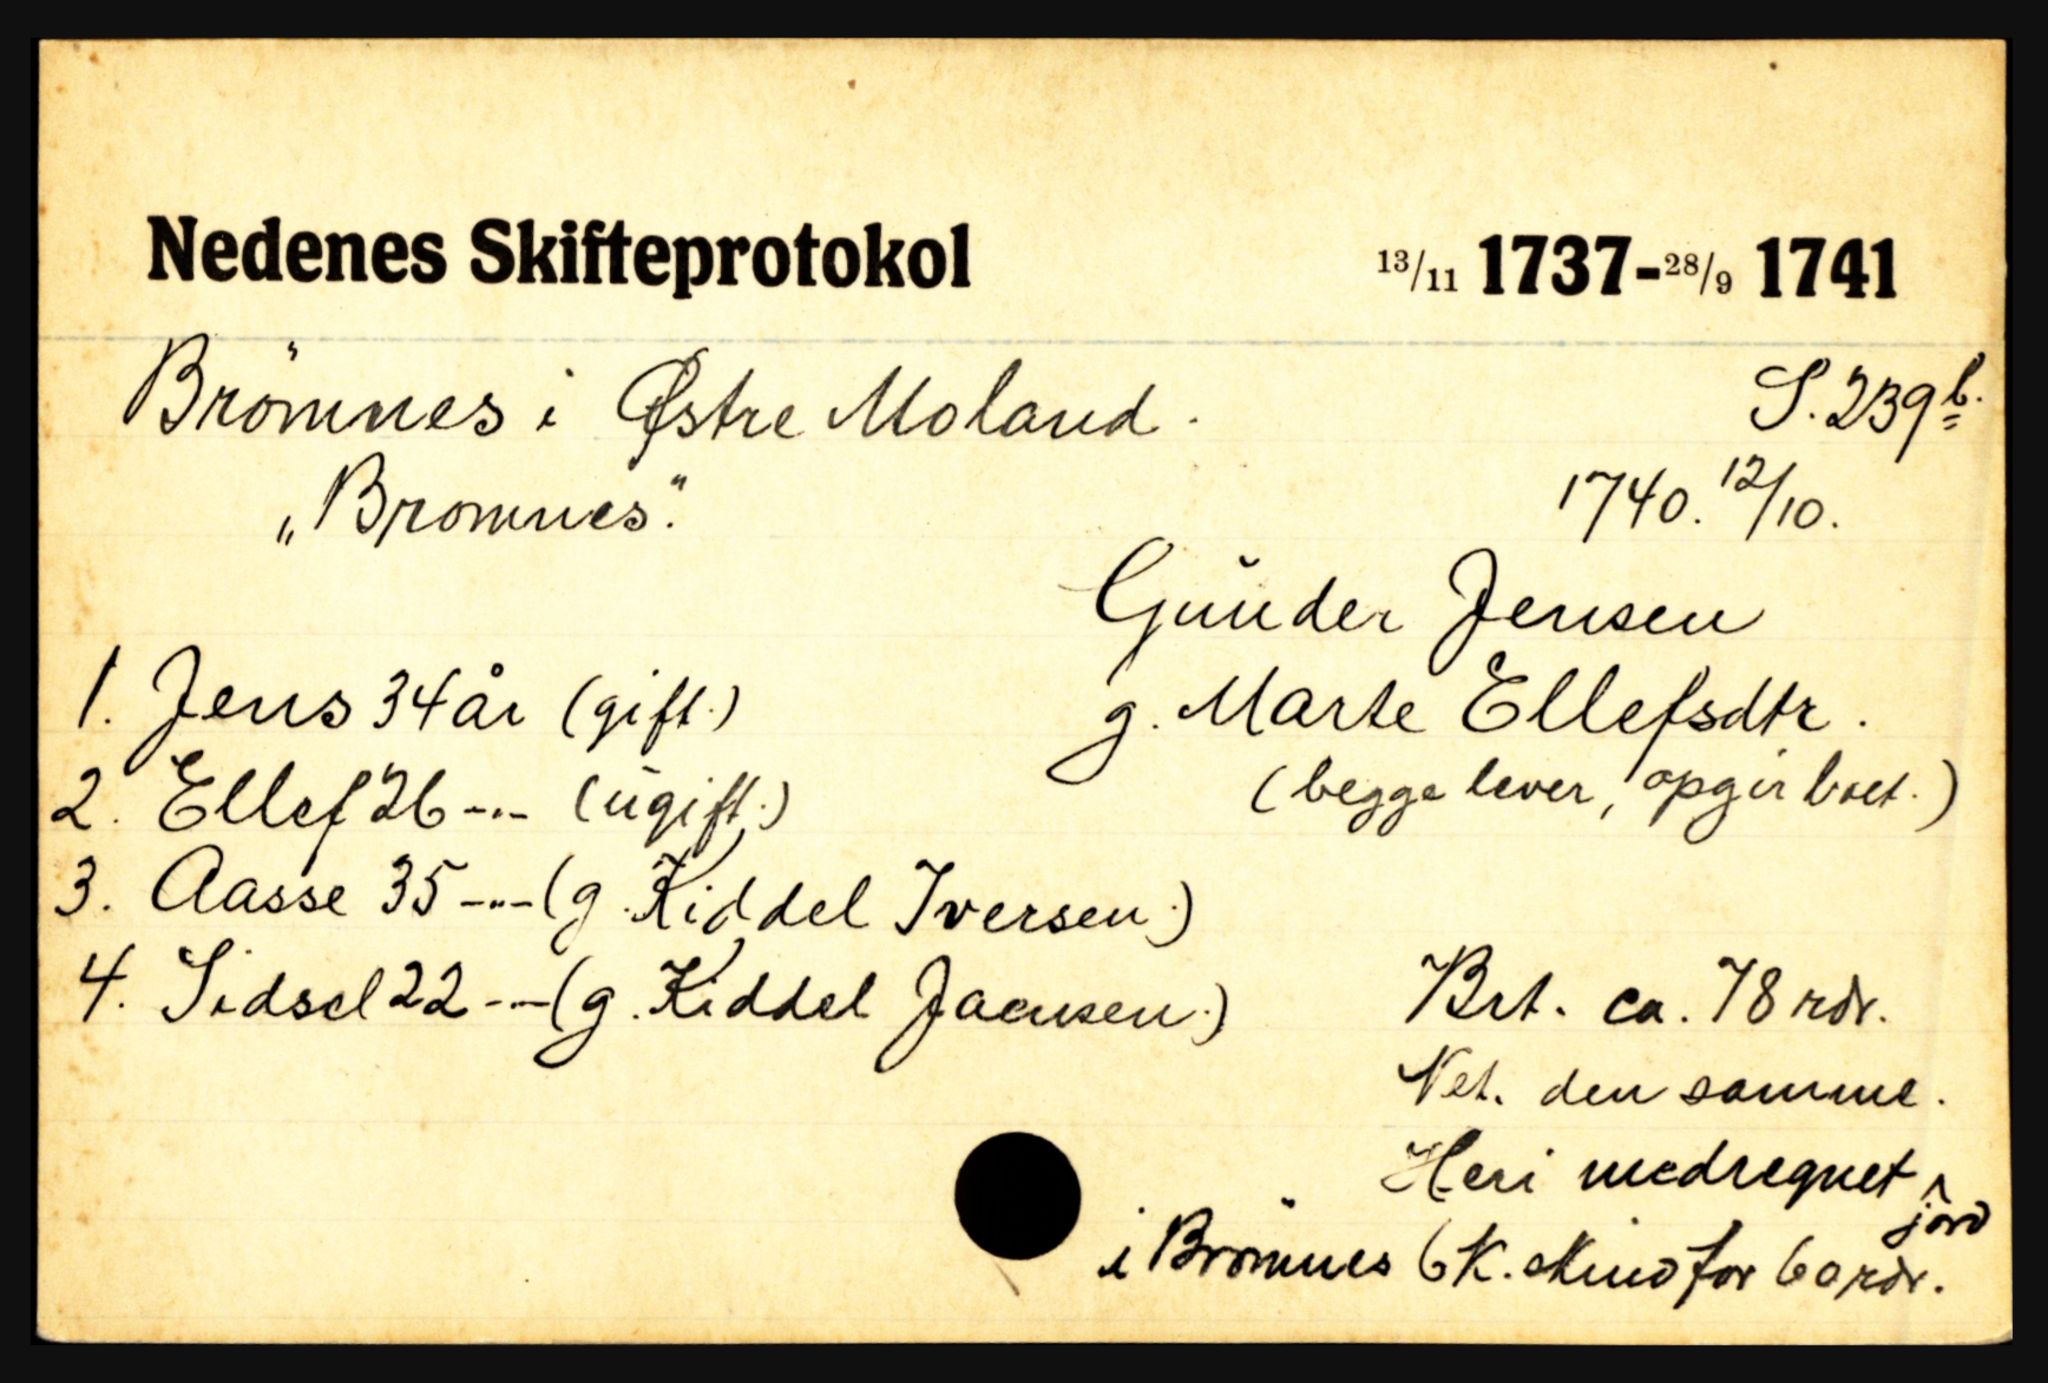 Nedenes Skifteprotokol 13/11 1737-28/9 1741
Brömnes i Østre Moland. S. 239 b.
„Bromnes“. 1740. 12/10.
Gunder Jensen
1. Jens 34 år (gift.) g. Marte Ellefsdtr.
2. Ellef 26 -"- (ugift.) (begge lever, opgir boet.)
3. Aasse 35 -"- (g. Kiddel Iversen.)
4. Sidsel 22 -"- (g. Kiddel Jaensen.) Brt. ca. 78 rdr.
Net. den samme.
Heri medregnet jord
i Brömnes 6 K. skind for 60 rdr.